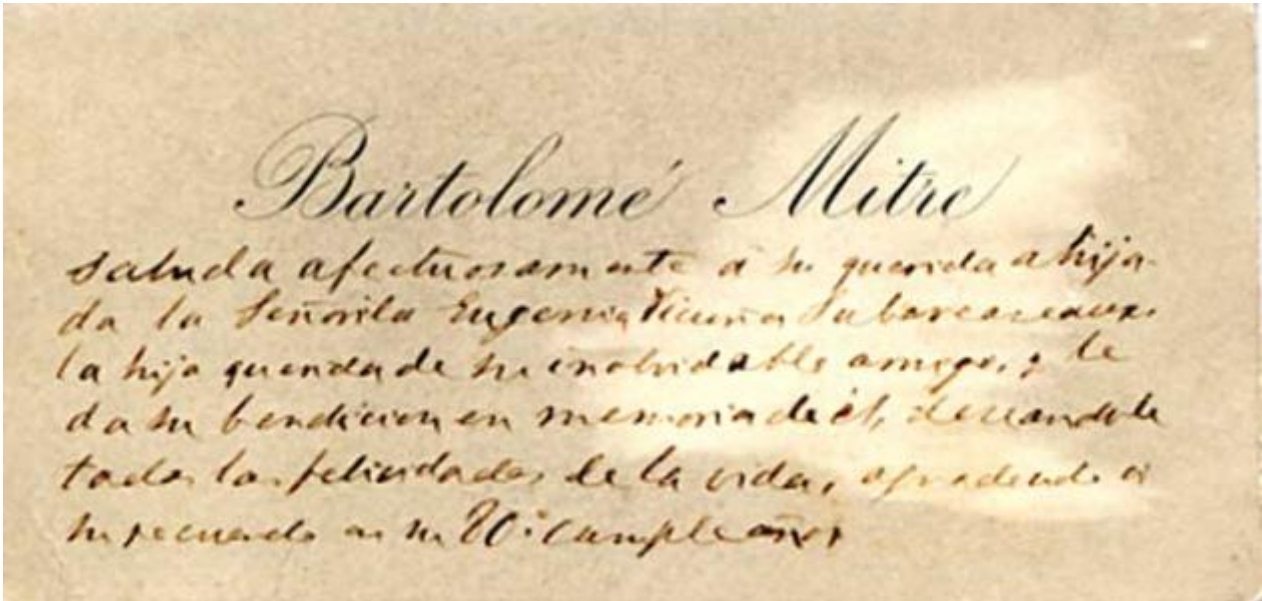 Bartolomé Mitre
saluda afectuosamente á su querida ahija-
da la Señorita Eugenia Vicuña Subercaseaux.
la hija querida de su inolvidable amigo, y le
da su bendicion en memoria de él, deseandole
todas las felicidades de la vida,
su recuerdo en su 80º cumpleaños